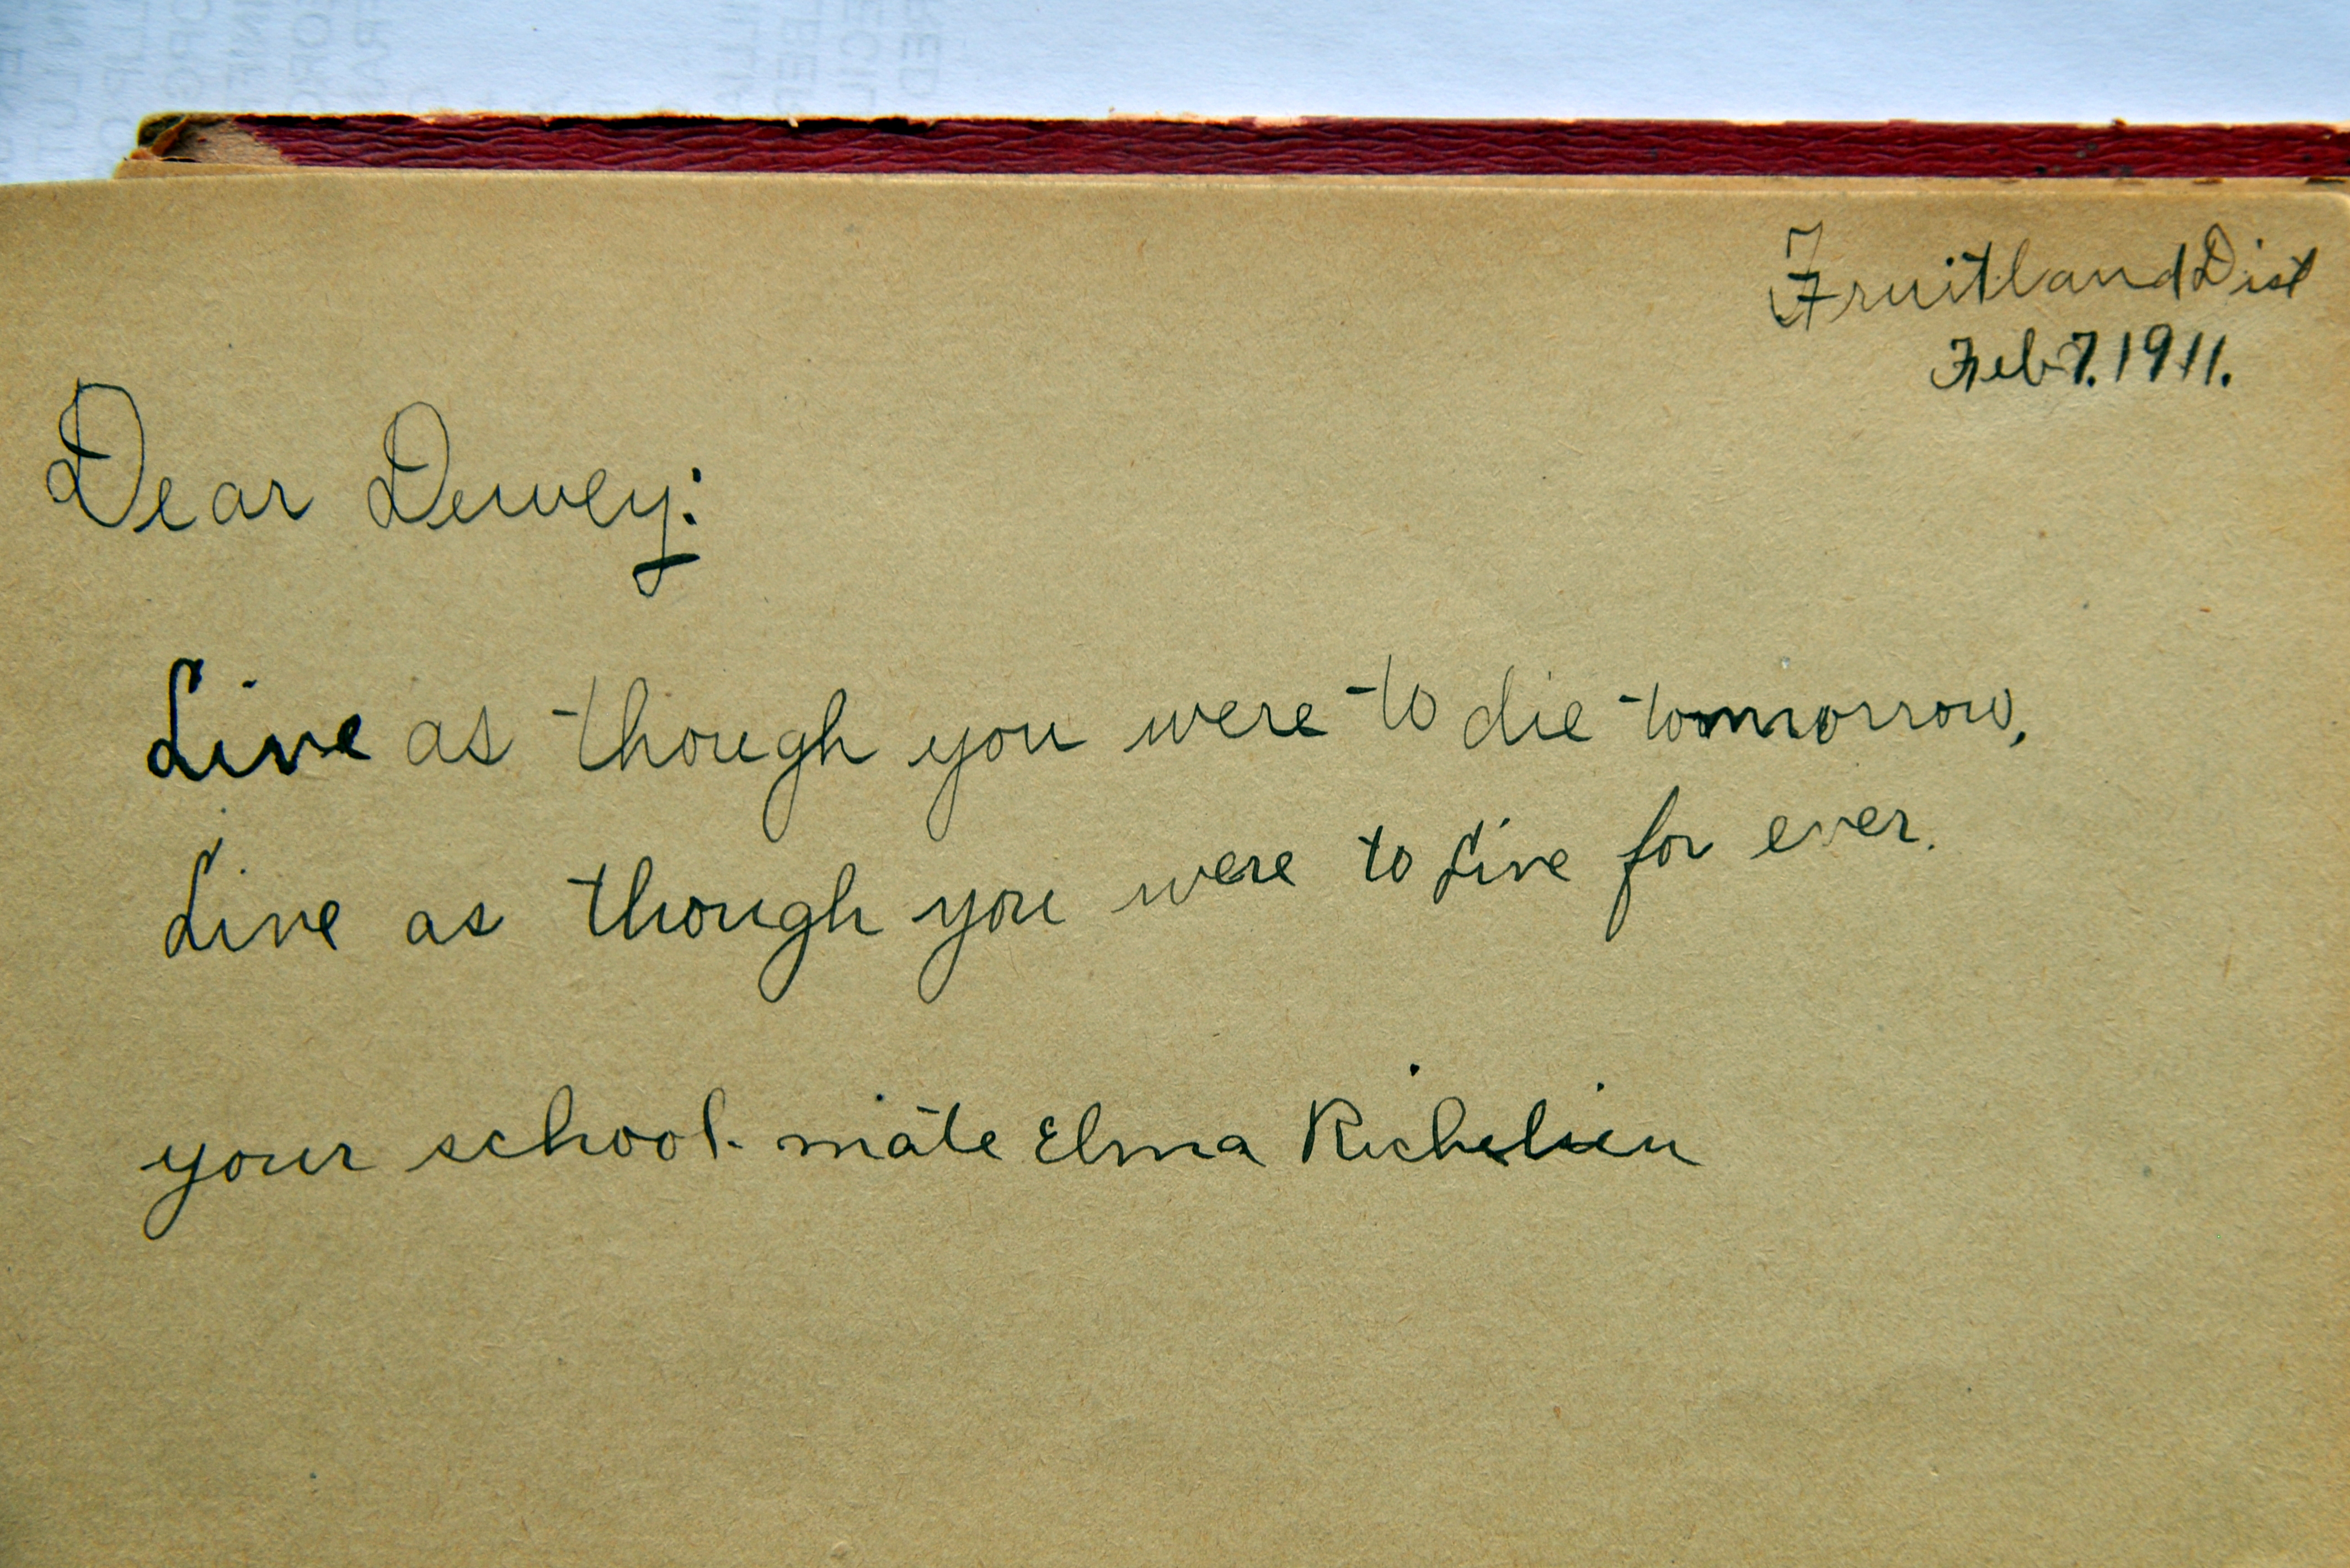 Fruitland Dist
Feb 7. 1911.
Dear Dewey:
Live as though you were to die tommorrow,
Live as though you were to Live for ever.
your school-mate Elma Richelieu